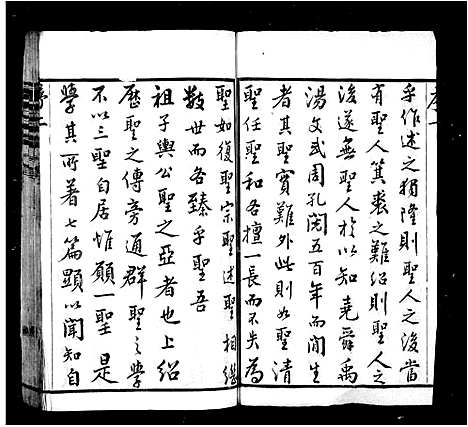 序一
乎作述之獨隆則聖人之後當
有聖人箕裘之難紹則聖人之
後遂無聖人於以知堯舜禹
湯文武周孔閱五百年而間生
者其聖實難外此則如聖清
聖任聖和各擅一長而不失為
聖如復聖宗聖述聖相繼
數世而各臻乎聖吾
祖子輿公聖之亞者也上紹
歷聖之傳旁通群聖之學
不以三聖自居惟願一聖是
學其所著七篇顯以聞知自
序二